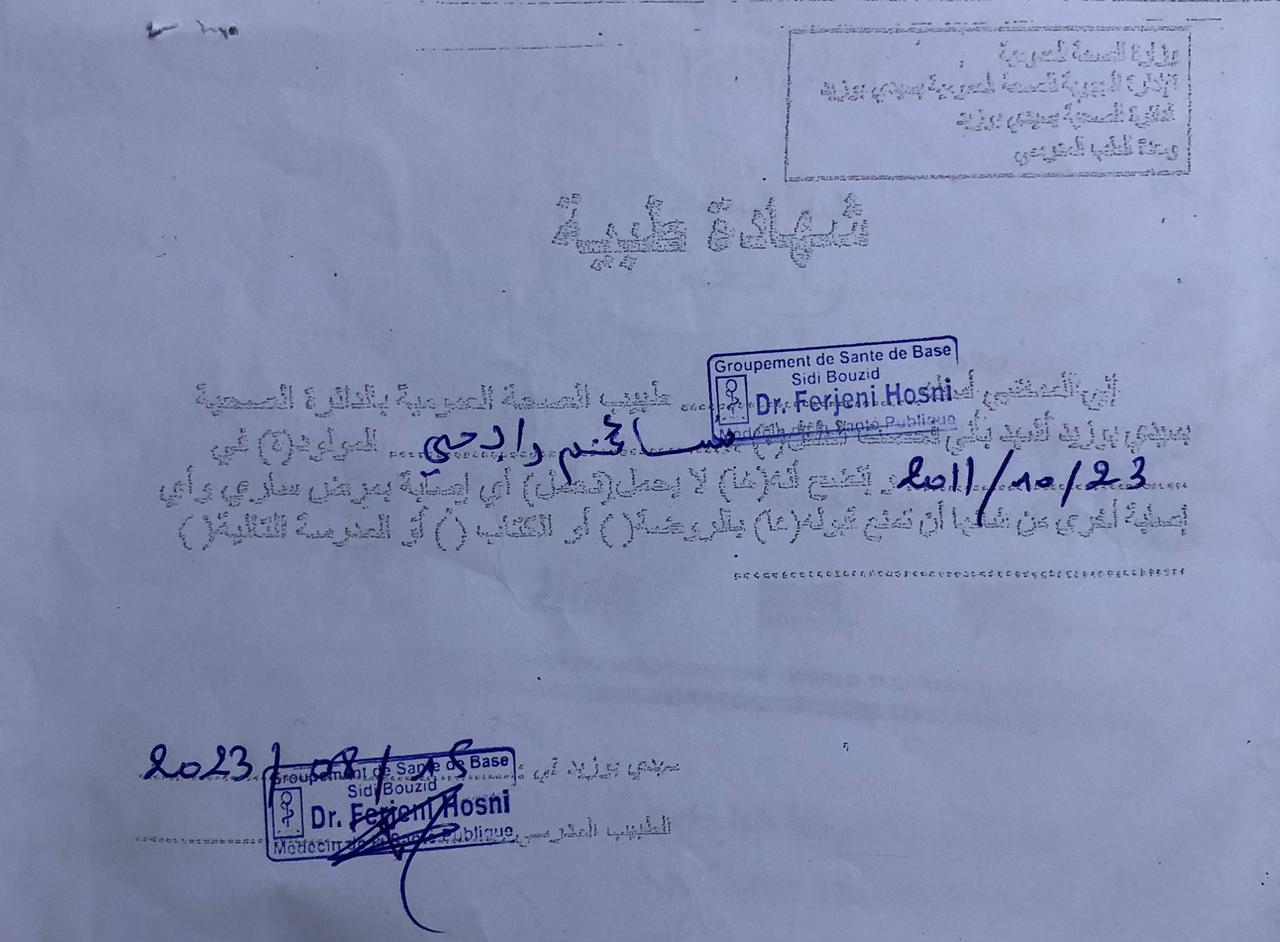 وزارة الصحة العمومية
الإدارة الجهوية للصحة بسيدي بوزيد
الدائرة الصحية بسيدي بوزيد
وحدة الطب المدرسي
شهادة طبية
Groupement de Sante de Base
Sidi Bouzid
Dr. Ferjeni Hosni
Médecin de la Santé Publique
إني الممضي أسفله ........ طبيب الصحة العمومية بالدائرة الصحية
بسيدي بوزيد أشهد بأني فحصت الطفل(ة) رابحي المولود(ة) في
2011/10/23 اتضح أنه(ها) لا يحمل(تحمل) أي إصابة بمرض ساري وأي
إصابة أخرى من شأنها أن تمنع قبوله(ها) بالروضة( ) أو الكتاب ( ) أو المدرسة التالية( )
........................................
سيدي بوزيد في : 2023/08/15
Groupement de Sante de Base
Sidi Bouzid
Dr. Ferjeni Hosni
Médecin de la Santé Publique
الطبيب المدرسي